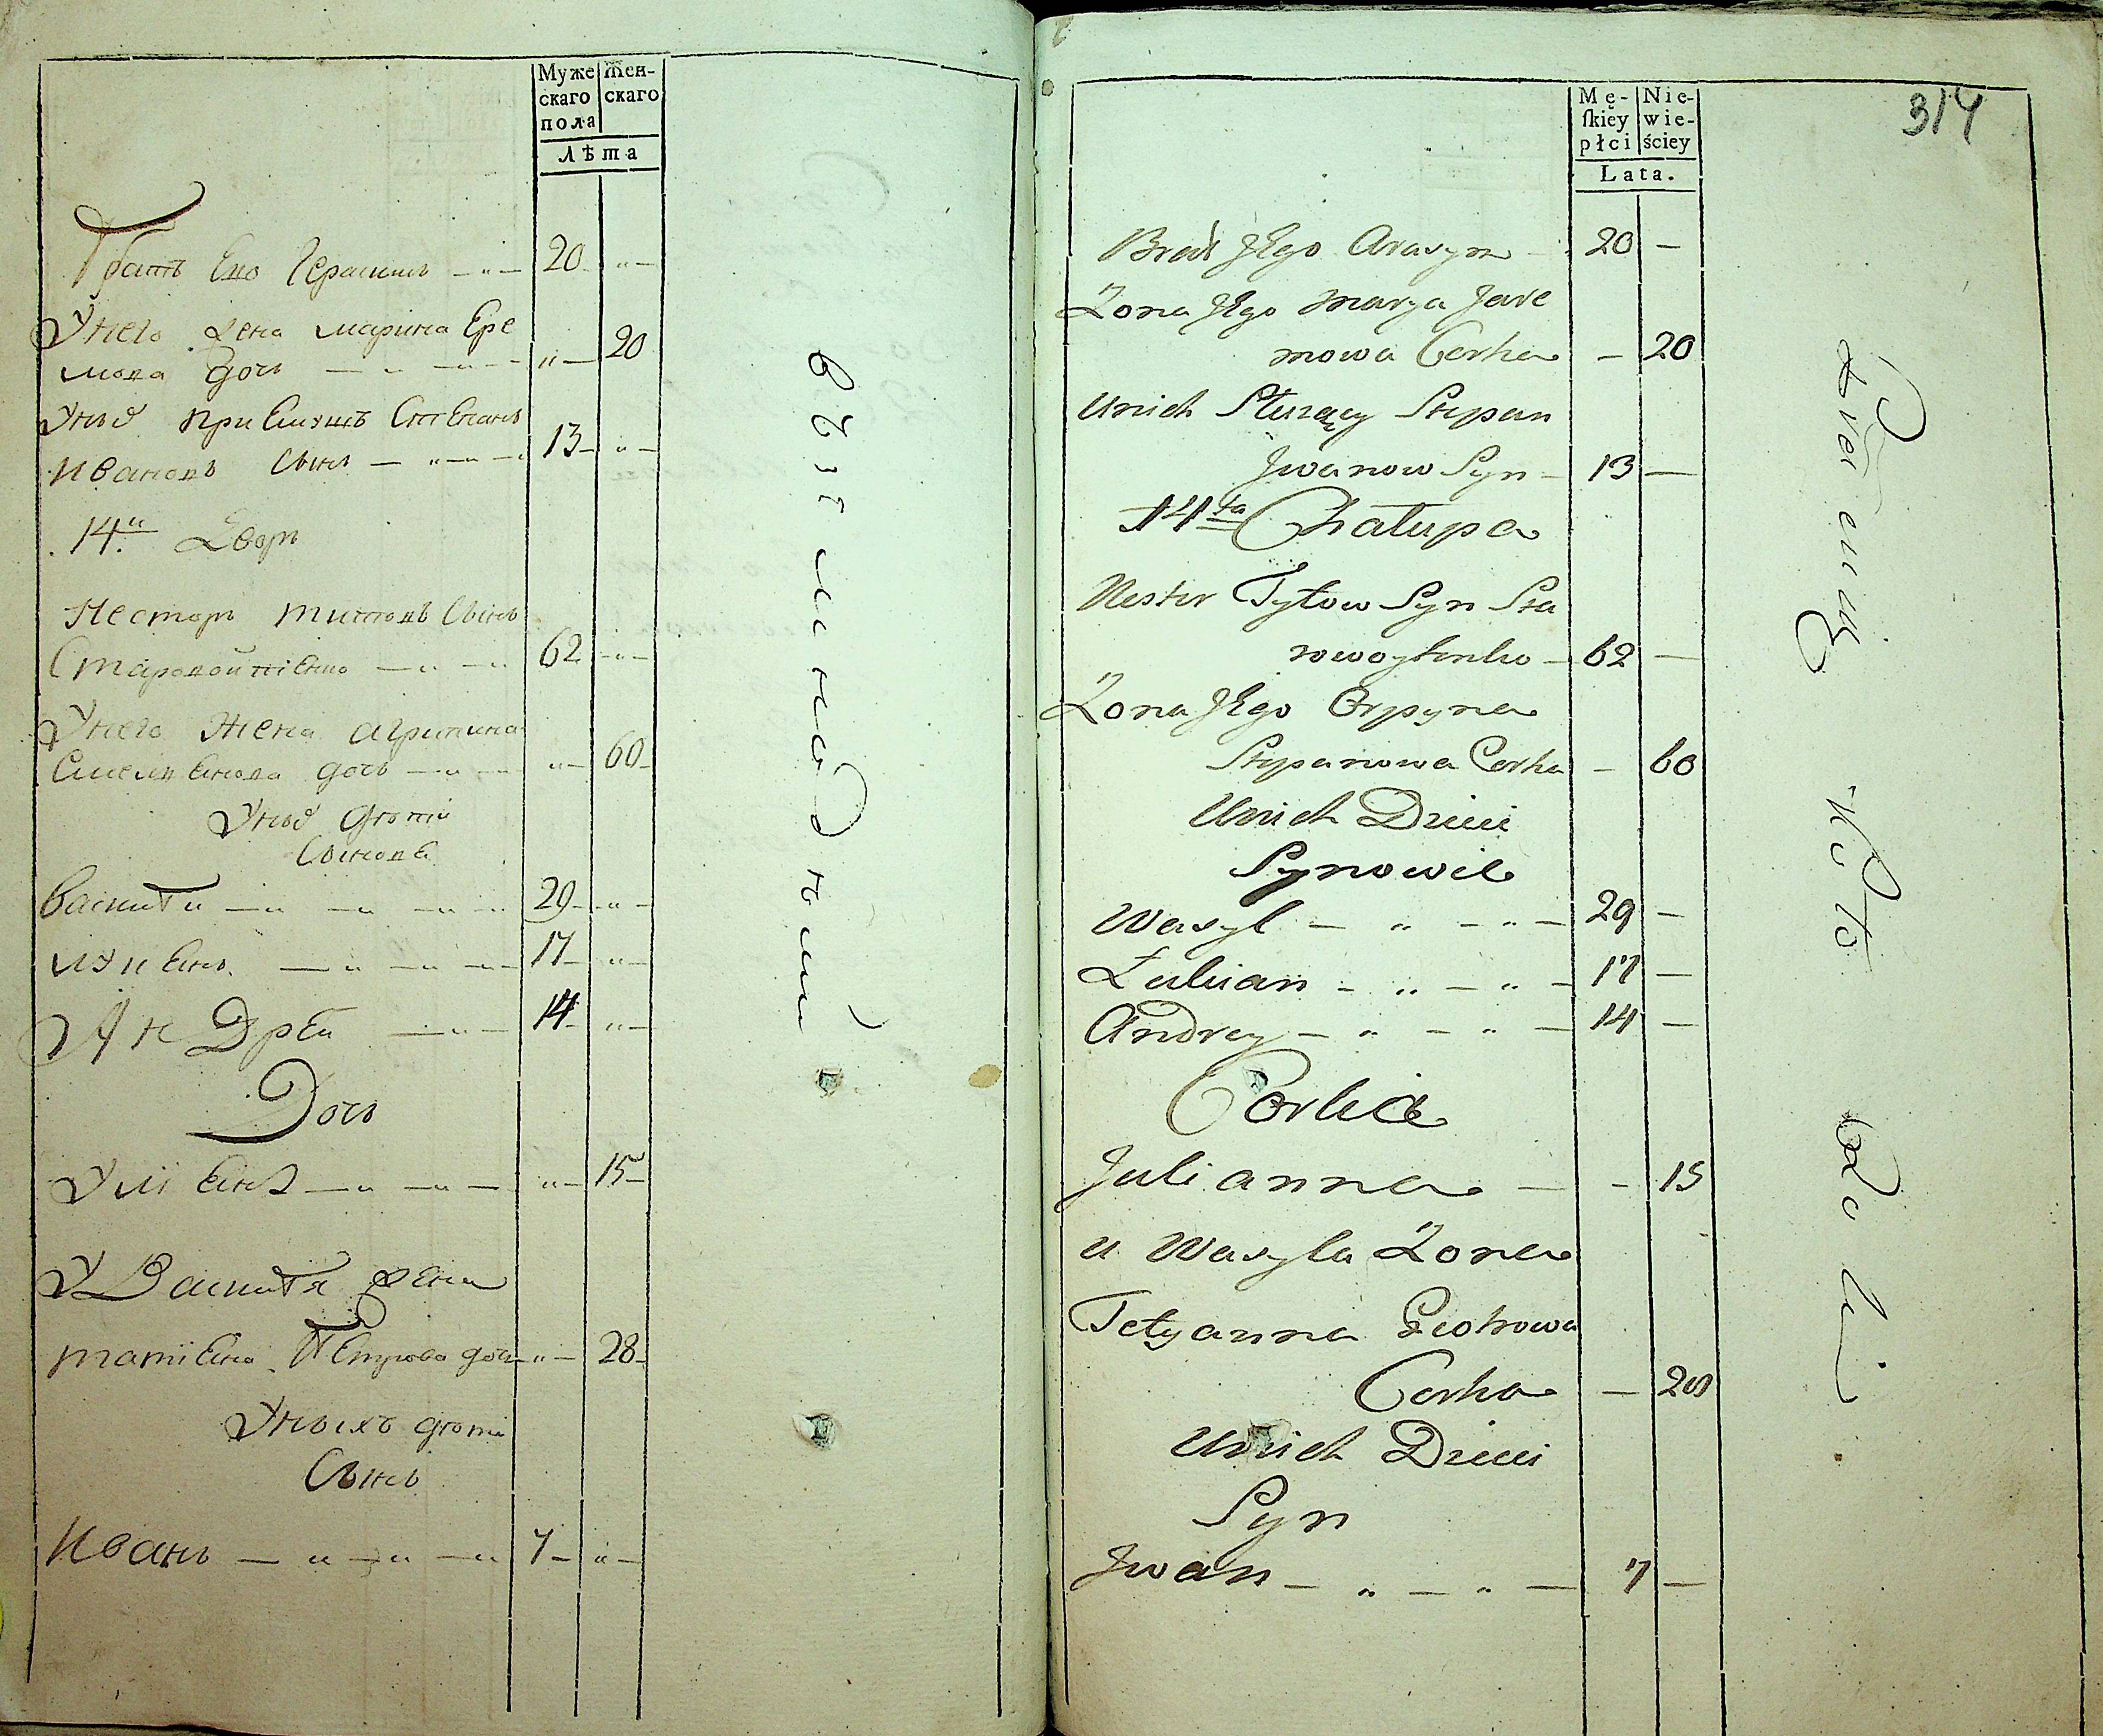 Муже
скаго
пола
Жен-
скаго
Лѣта
Братъ Его Герасимъ 20
Унего Жена марина Ере
мова дочь 20
Уныхъ приЕмышъ СтЕпанъ
ивановъ Сынъ 13
14й Дворъ
Несторъ титовъ Сынъ
СтаровойтЕнко 62
Унего Жена агрипина
дочь 60
Уныхъ дѣти
Сыновѣ
Василiи 29
лукЕянъ 17
АнДрЕй 14
Дочь
УлiЕна 15
УВасилiя жЕна
татiЕна ПЕтрова дочь 28
Уныхъ дѣти
Сынъ
Иванъ 7
Mę-
ſkiey
płci
Nie-
wie-
ściey
Lata.
314
Brat JEgo Arasym 20 —
Żona JEgo Marya Jare
mowa Corka — 20
Unich Służący Stepan
Jwanow Syn 13 —
14ta Chałupa
Nester Tytow Syn Sta
rowoytenko 62 —
Żona JEgo Orpyna
Stepanowa Corka — 60
Unich Dzieci
Synowie
Wasyl 29 —
Łukian 17 —
Andrey 14 —
Corka
Julianna — 15
u Wasyla Żona
Tetyanna Piotrowa
Corka — 28
Unich Dzieci
Syn
Jwan 7 —